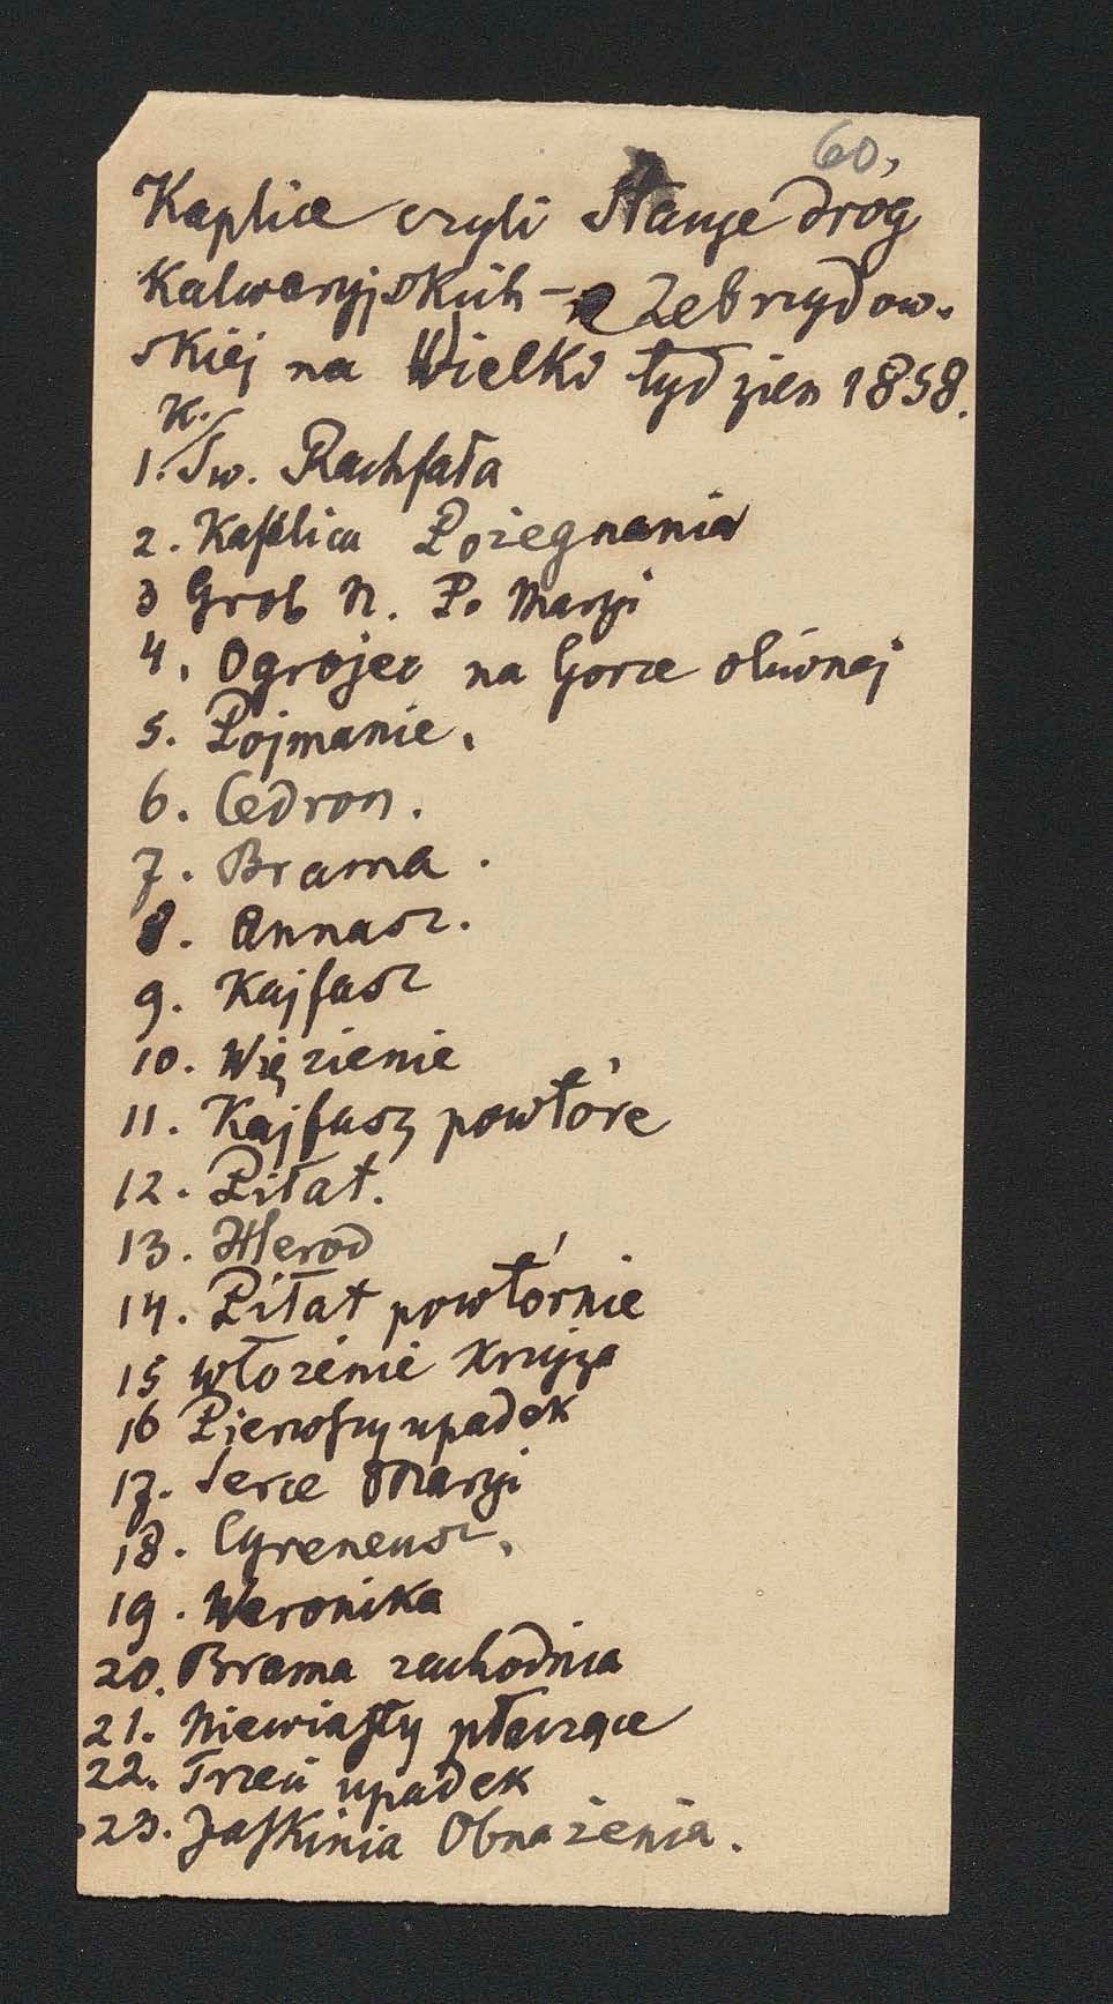 60,
Kaplice czyli Stacye dróg
Kalwaryjskich - Zebrzydow-
skiej na Wielki tydzien 1858.
K.
1. Św. Rachfała
2. Kaplica Pożegnania
3 Grob N. P. Maryi
4. Ogrojec na Gorze oliwnej
5. Pojmanie.
6. Cedron.
7. Brama.
8. Annasz.
9. Kajfasz
10. Więzienie
11. Kajfasz powtóre
12. Piłat.
13. Herod
14. Piłat powtórnie
15 Włożenie Krzyża
16 Pierwszy upadek
17. Serce Maryi
18. Cyreneusz.
19. Weronika
20. Brama zachodnia
21. Niewiasty płaczące
22. Trzeci upadek
23. Jaskinia Obnażenia.